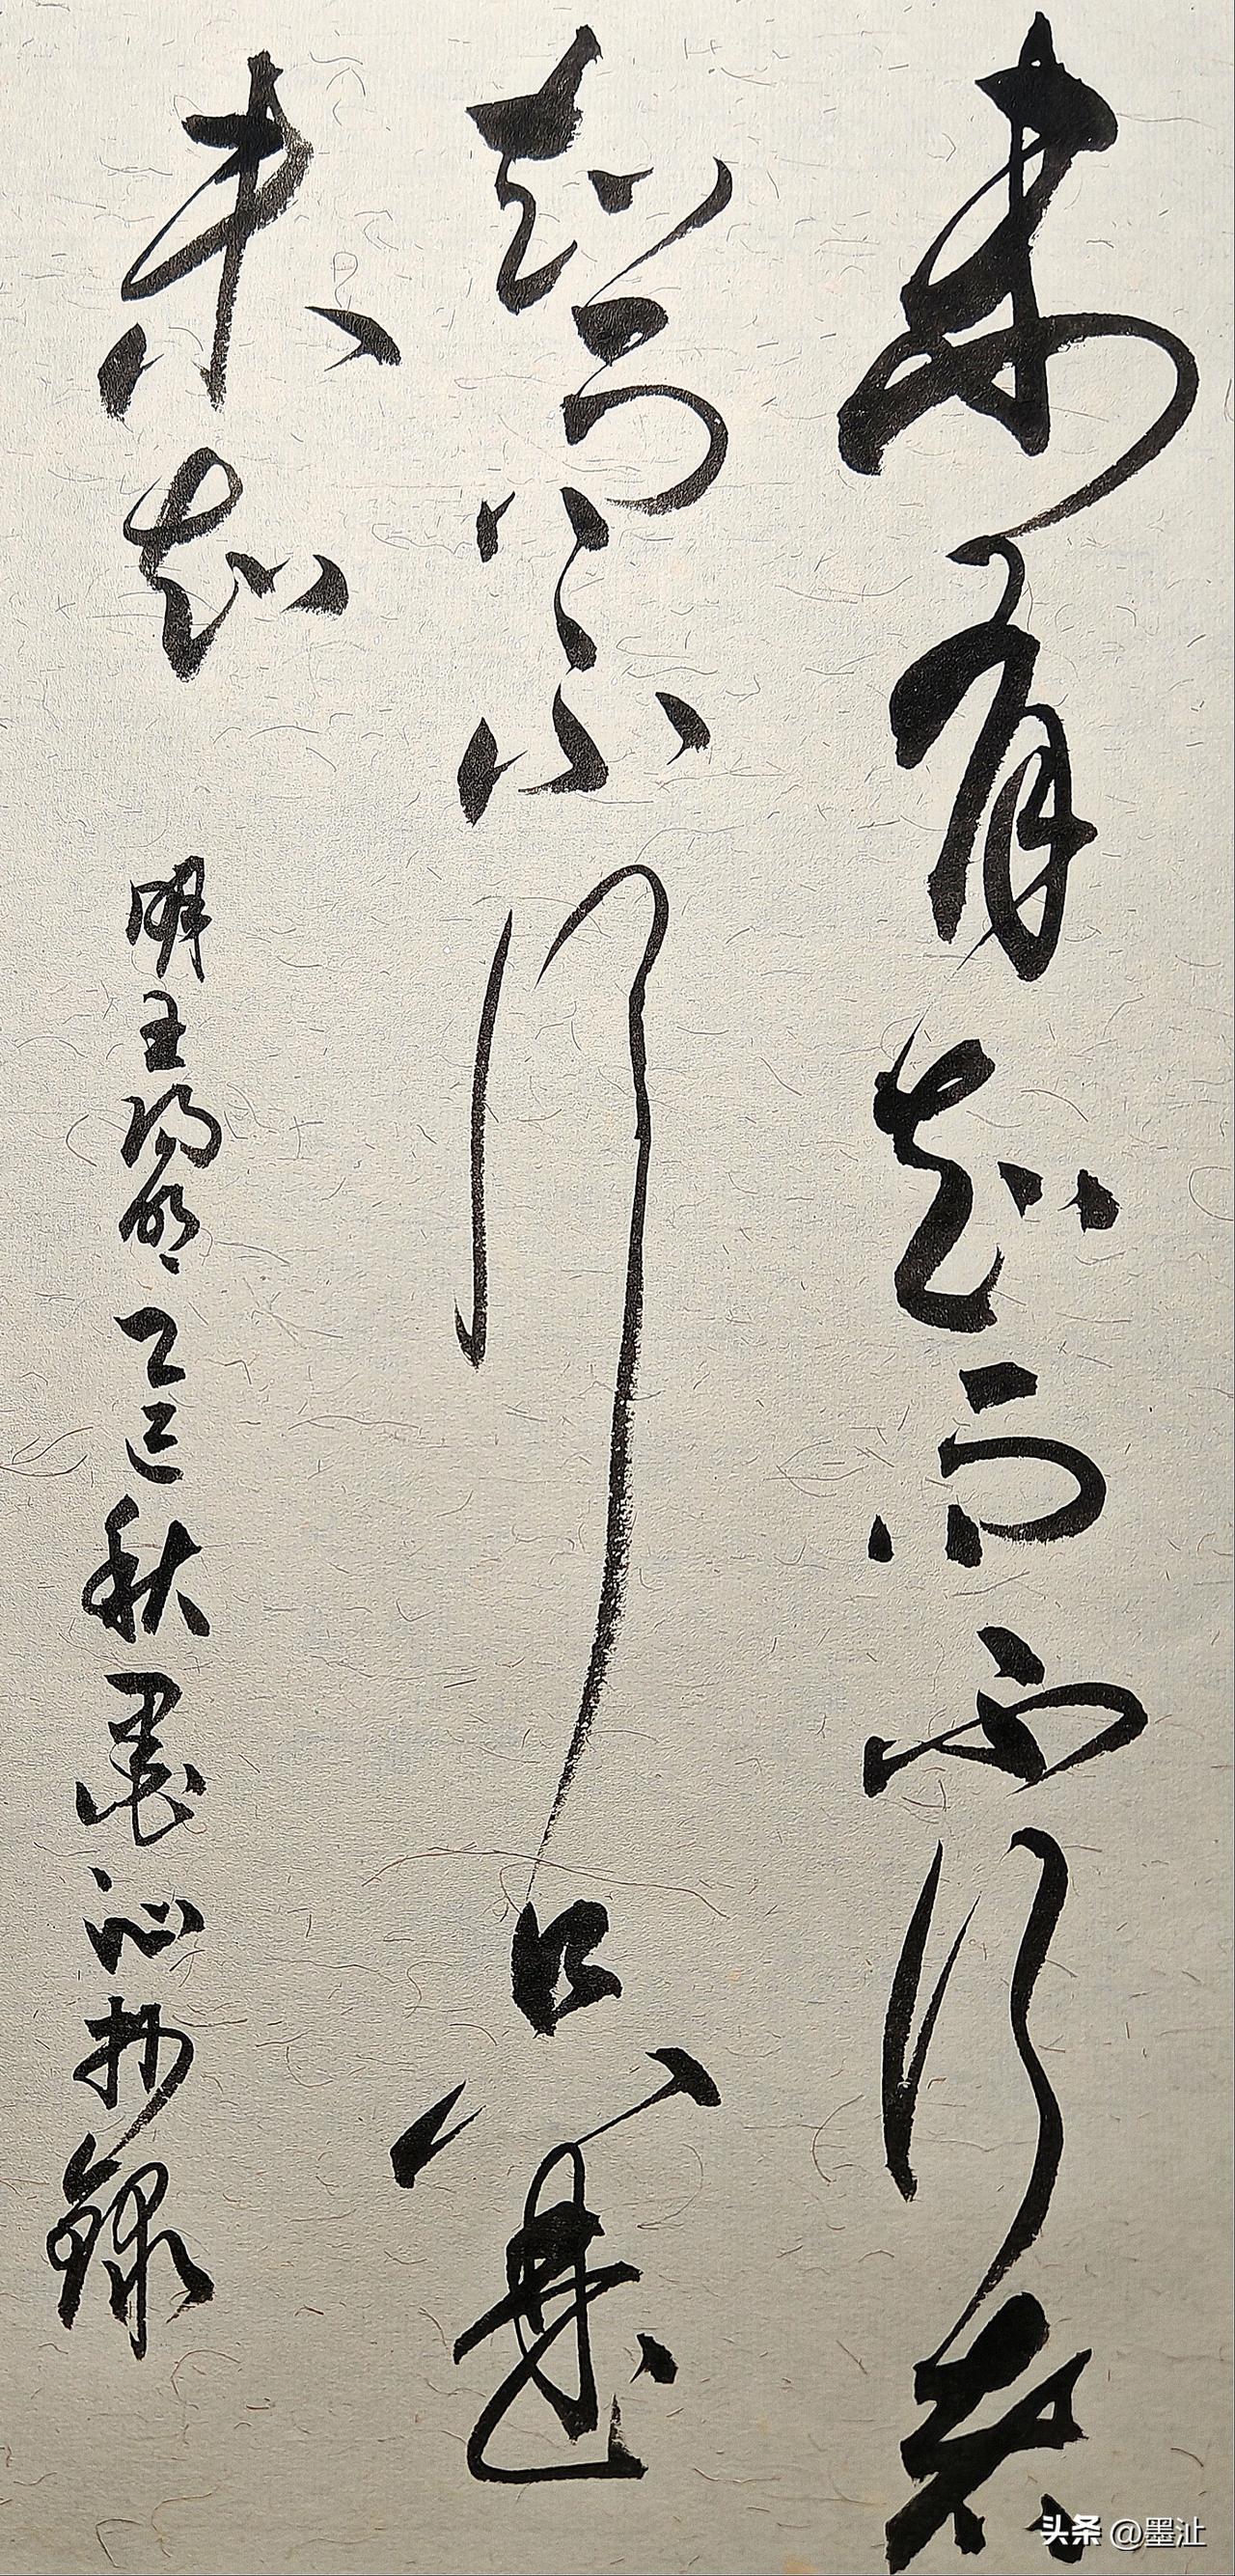 未有知而不行者
知而不行只是
未知
明王陽明乙巳秋墨沁抄録
头条 @墨沚